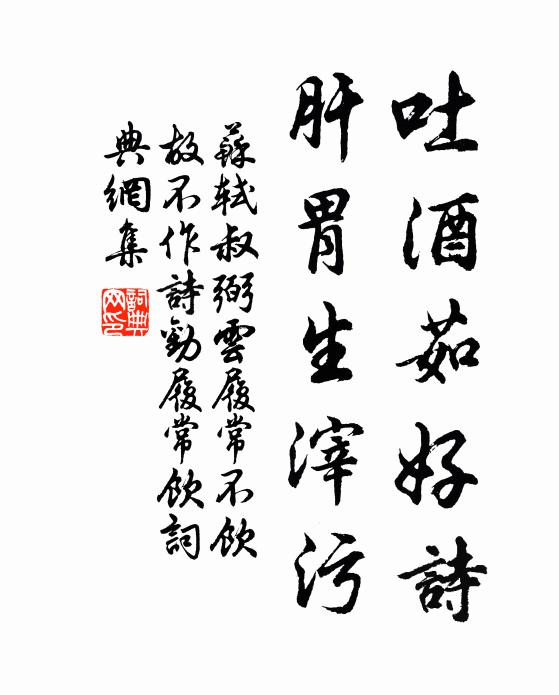 吐酒茹好詩
肝胃生滓污
蘇軾叔弼雲履常不飲
故不作詩勸履常飲詞
典網集
詞典網印